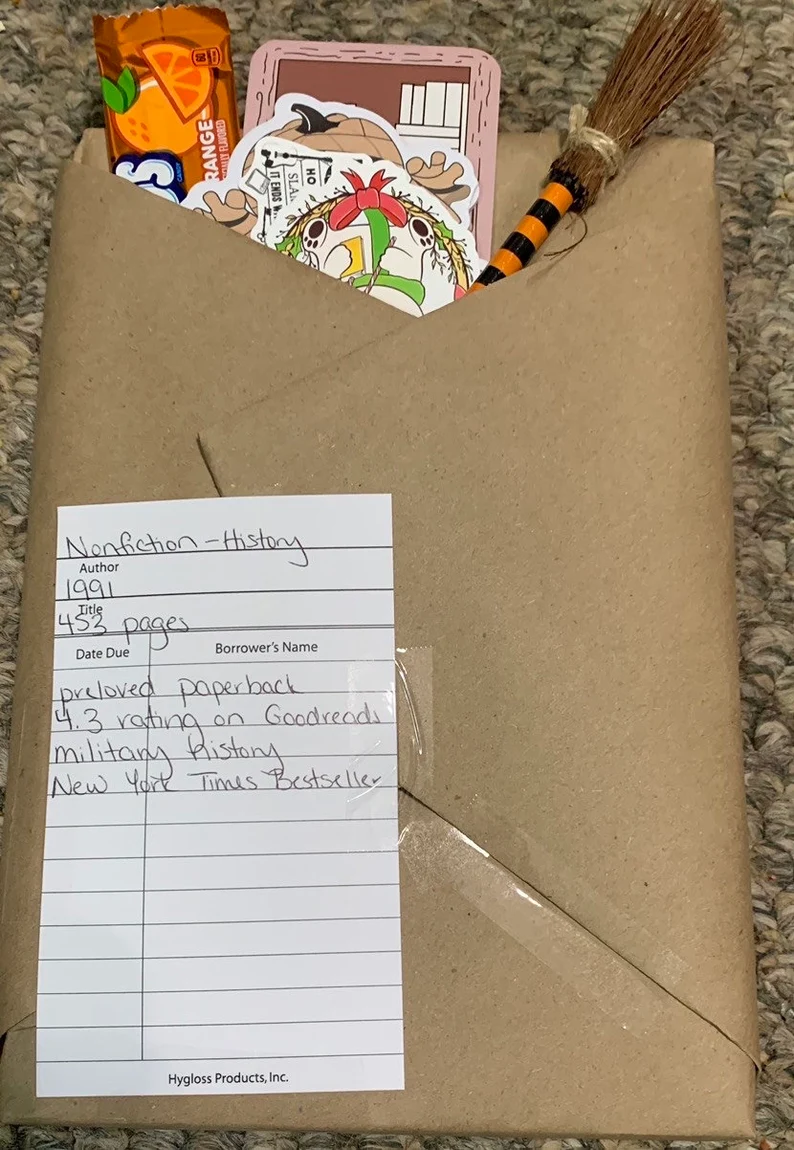 RANGE
HO
SLA
IT ENDS W
Nonfiction - History
Author
1991
Title
453 pages
Date Due Borrower's Name
preloved paperback
4.3 rating on Goodreads
military history
New York Times Bestseller
Hygloss Products, Inc.